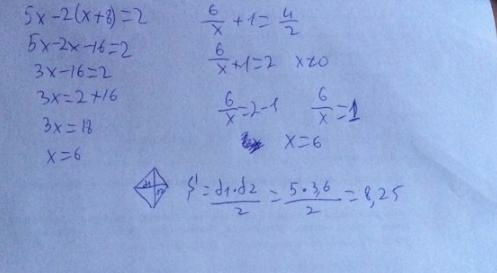 5x-2(x+8)=2
5x-2x-16=2
3x-16=2
3x=2+16
3x=18
x=6
6/x+1=4/2
6/x+1=2 x≠0
6/x=2-1 6/x=1
x=6
d1 d2 S=d1·d2/2=5·3,6/2=8,25